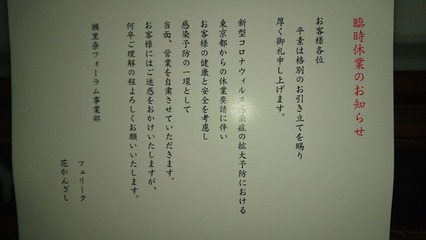 臨時休業のお知らせ
お客様各位
平素は格別のお引き立てを賜り
厚く御礼申し上げます。
新型コロナウィルス感染症の拡大予防における
東京都からの休業要請に伴い
お客様の健康と安全を考慮し
感染予防の一環として
当面、営業を自粛させていただきます。
お客様にはご迷惑をおかけいたしますが、
何卒ご理解の程よろしくお願いいたします。
瀬里奈フォーラム事業部
フェリーク
花かんざし